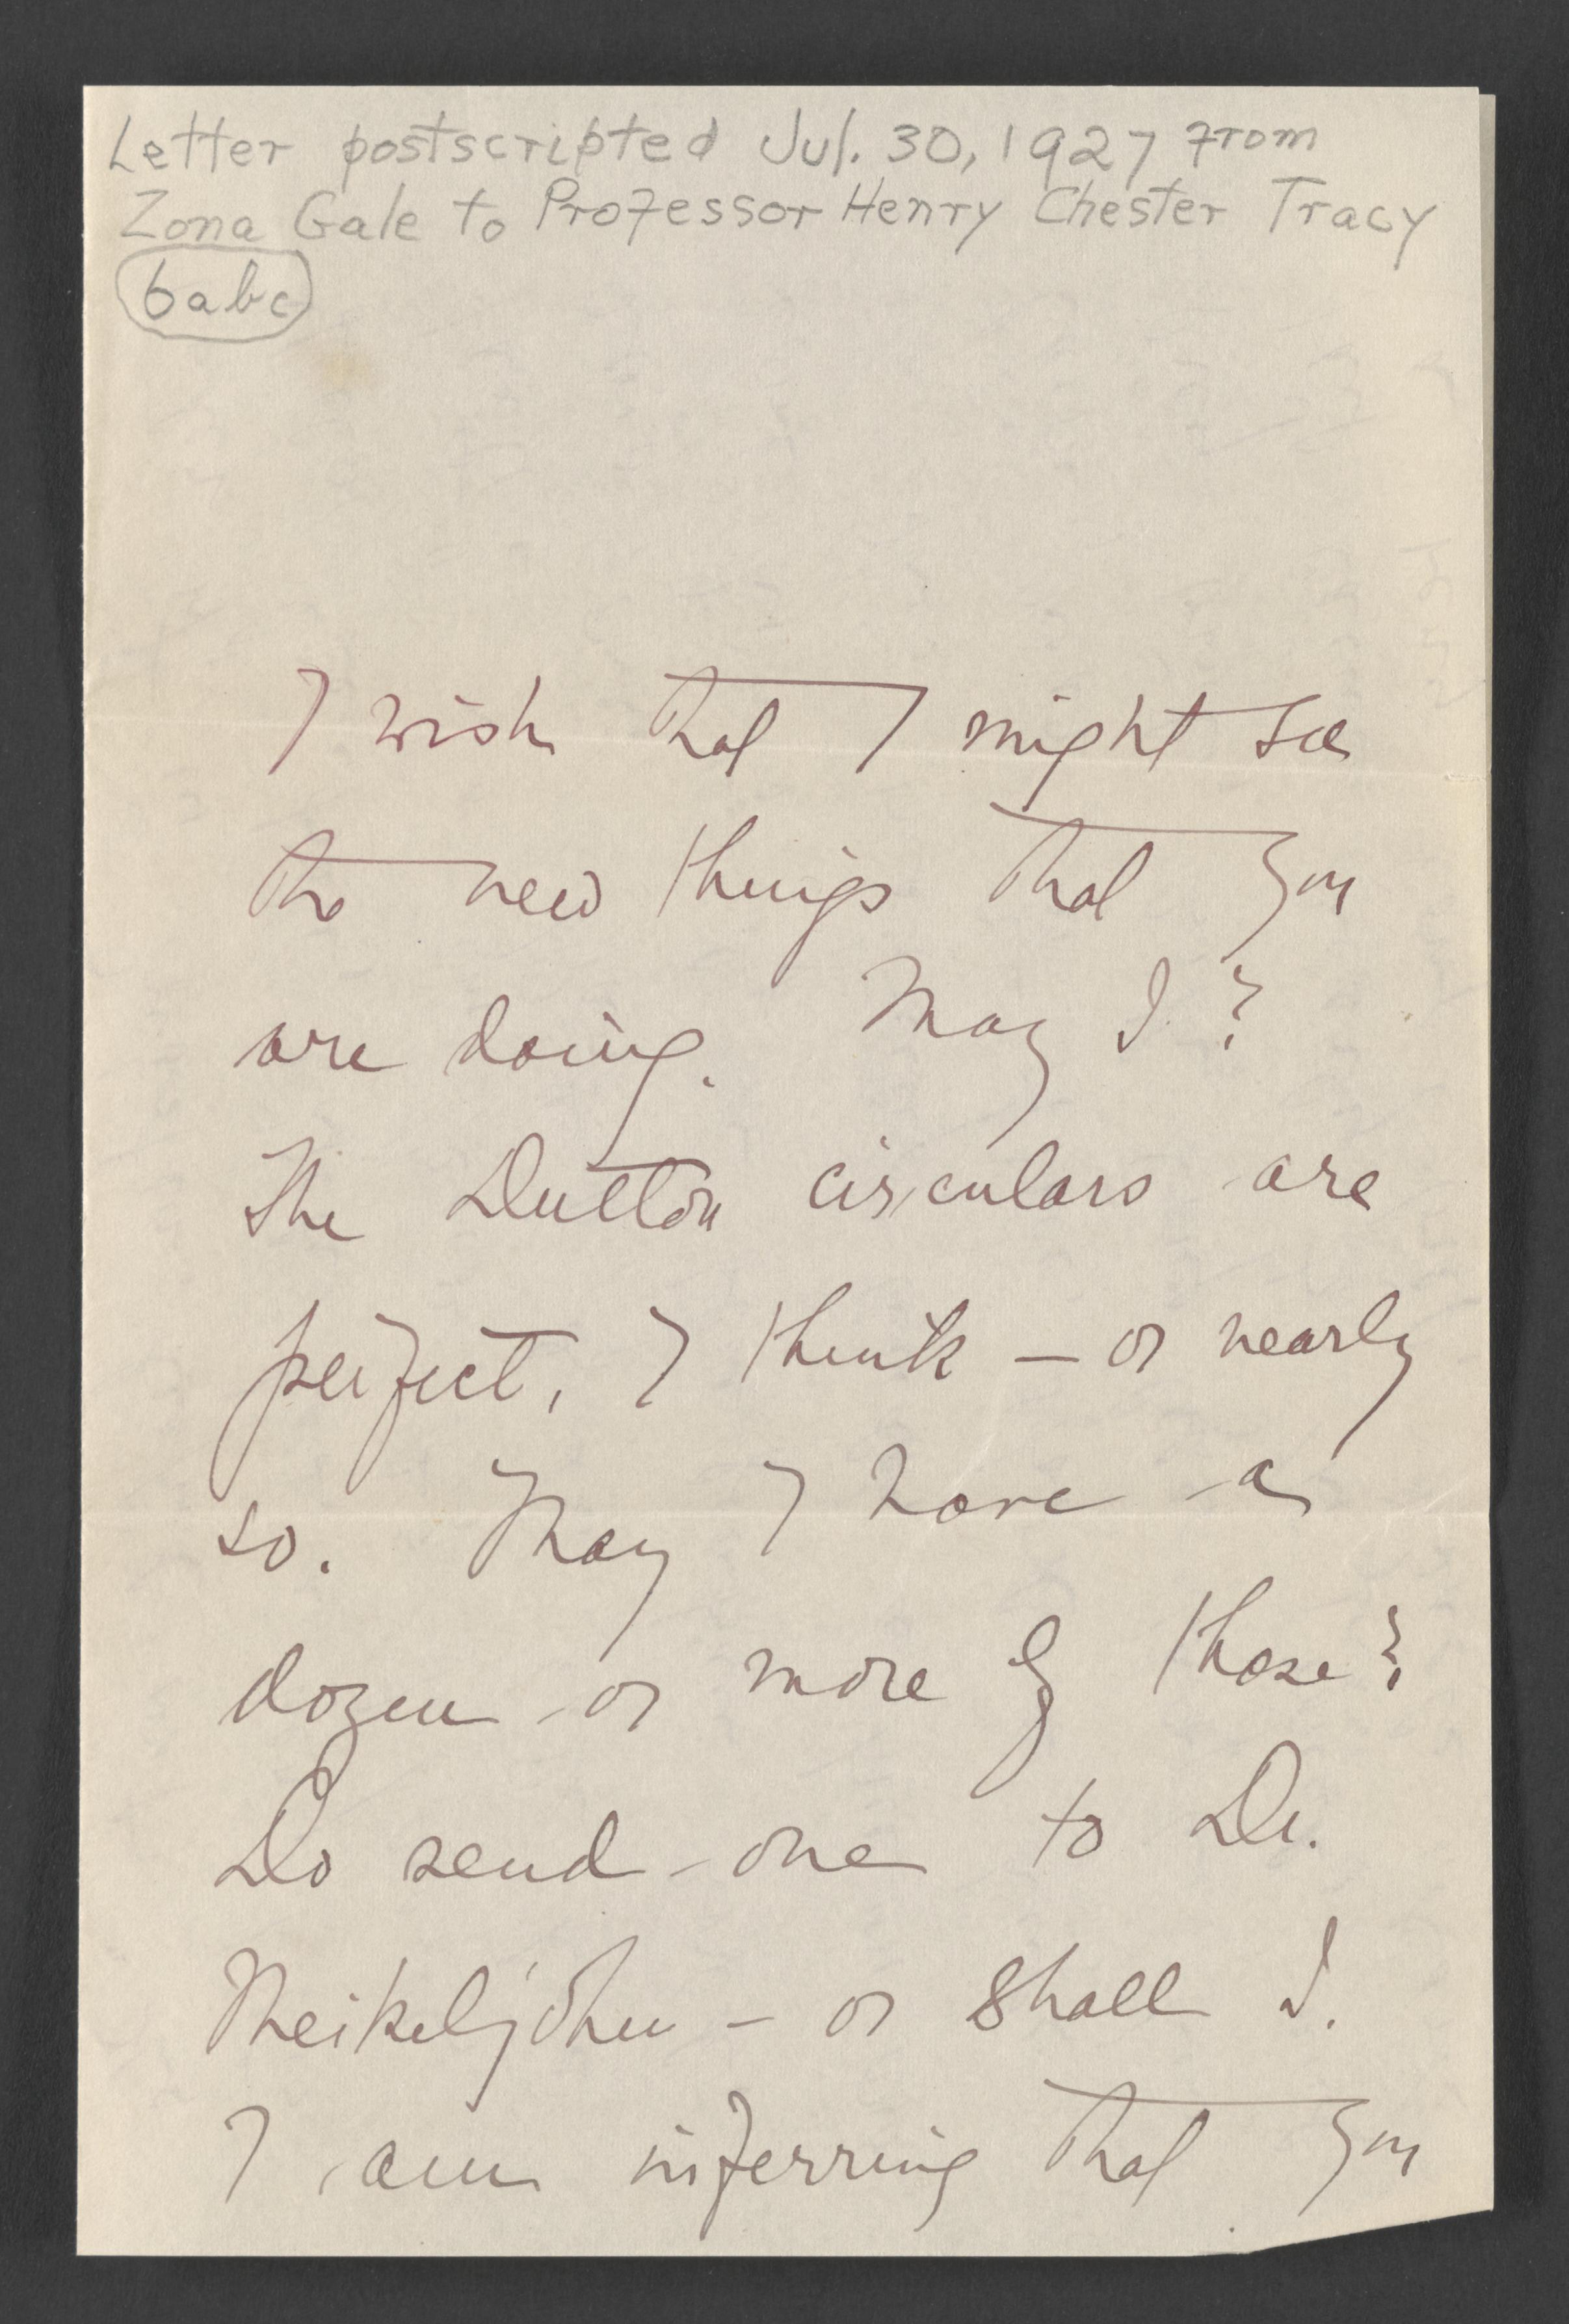 Letter postscripted Jul. 30, 1927 from
Zona Gale to Professor Henry Chester Tracy
6abc
I wish that I might see
the new things that you
are doing. May I?
The Dutton circulars are
perfect, I think — or nearly
so. May I have a
dozen or more of those?
Do send one to Dr.
Meikeljohn — or shall I.
I am inferring that you